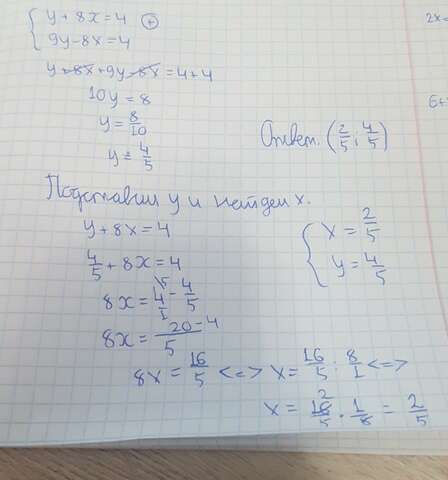 { y + 8x = 4 (+)
9y - 8x = 4
y + 8x + 9y - 8x = 4 + 4
10y = 8
y = 8/10
y = 4/5
Ответ. (2/5 ; 4/5)
Подставим y и найдем x.
y + 8x = 4
4/5 + 8x = 4
8x = 4/1 \5 - 4/5
8x = 20 - 4 / 5
8x = 16/5 <=> x = 16/5 : 8/1 <=>
x = 16/5 \2 · 1/8 = 2/5
{ x = 2/5
y = 4/5
2x
6+